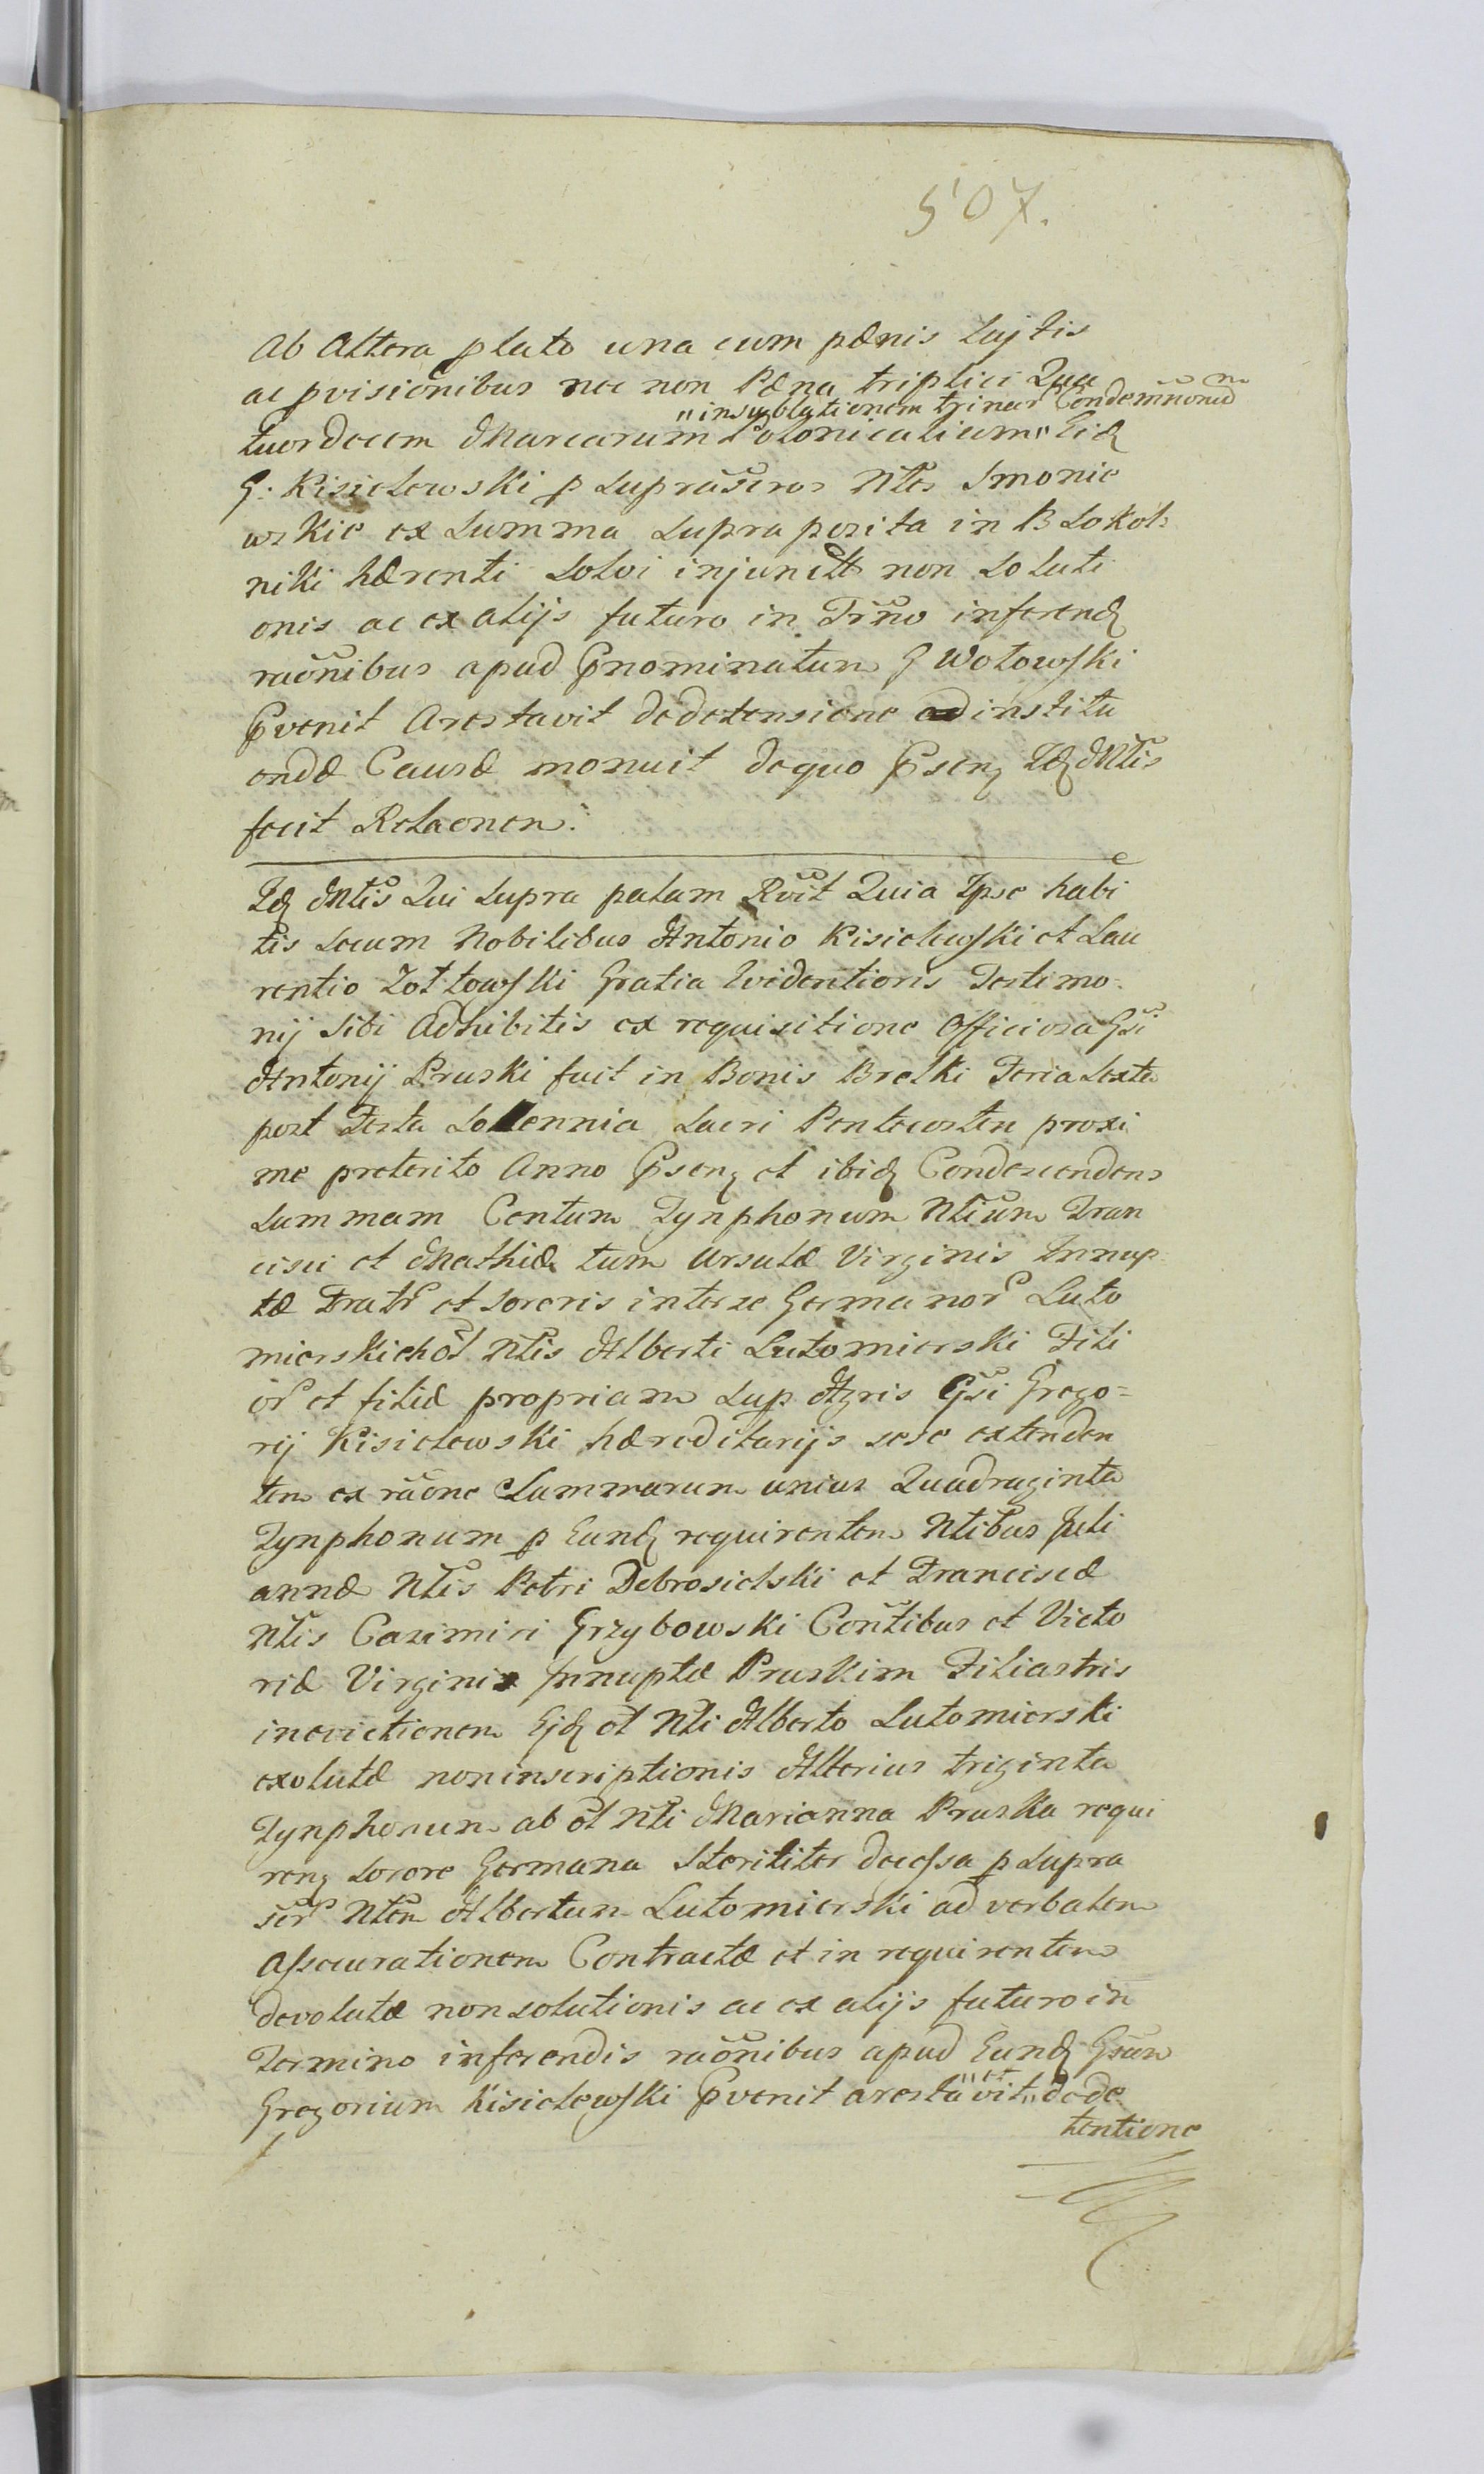 507.
Ab Altera plato una cum pænis Lujtis
ac pvisiõnibus nec non Pæna triplici Qua
"insublationem trinar Condemnonũ
tuordecem Marcarum Polonicalium" Eid
G: Kisielewski p Suprascros Ntes Smonie
wskie ex Summa Supra posita in B Sokoł
niki hærenti Solvi injunctæ non Soluti
onis ac ex alijs futuro in Trno inferend
raõnibus apud Pnominatum G Wołowski
Pvenit Arestavit dedetensione ad institu
endæ Causæ monuit dequo Psen Id Mtis
fecit Relaonem.
Id Mtis Qui Supra palam Rvit Quia Ipse habi
tis Secum Nobilibus Antonio Kisielewski et Lau
rentio Zołtowski Gratia Evidentioris Testimo
nij Sibi Adhibitis ex requisitione Officiosa Gsi
Antonij Pruski fuit in Bonis Brelki Feria Sexta
post Festa Sollennia Sacri Pentecosten proxi
me preterito Anno Psen et ibid Condescendens
Summam Centum Tynphonum Ntium Fran
cisci et Mathiæ tum Ursulæ Virginis Innup
tæ Fratr et Sororis interse Germanor Luto
mierskich ol Ntis Alberti Lutomierski Fili
or et filiæ propriam Sup Agris Gsi Grego=
rij Kisielewski hæreditarijs sese extenden
tem ex raõne Summarum unius Quadraginta
Tynphonum p Eund requirentem Ntibus Juli
annæ Ntis Petri Debrosielski et Franciscæ
Ntis Casimiri Grzybowski Contibus et Victo
riæ Virginis Innuptæ Pruskim Filiastris
inevictionem Ejd ol Nti Alberto Lutomierski
exolutæ noninscriptionis Alterius triginta
Tynphonum ab ol Nti Marianna Pruska requi
ren Sorore Germana Steriliter decessa p Supra
scr Ntem Albertum Lutomierski ad verbalem
Assecurationem Contractæ et in requirentem
devolutæ non solutionis ac ex alijs futuro in
Termino inferendis raõnibus apud Eund Gsum
Gregorium Kisielewski Pvenit aresta"et"vit dede
tentione